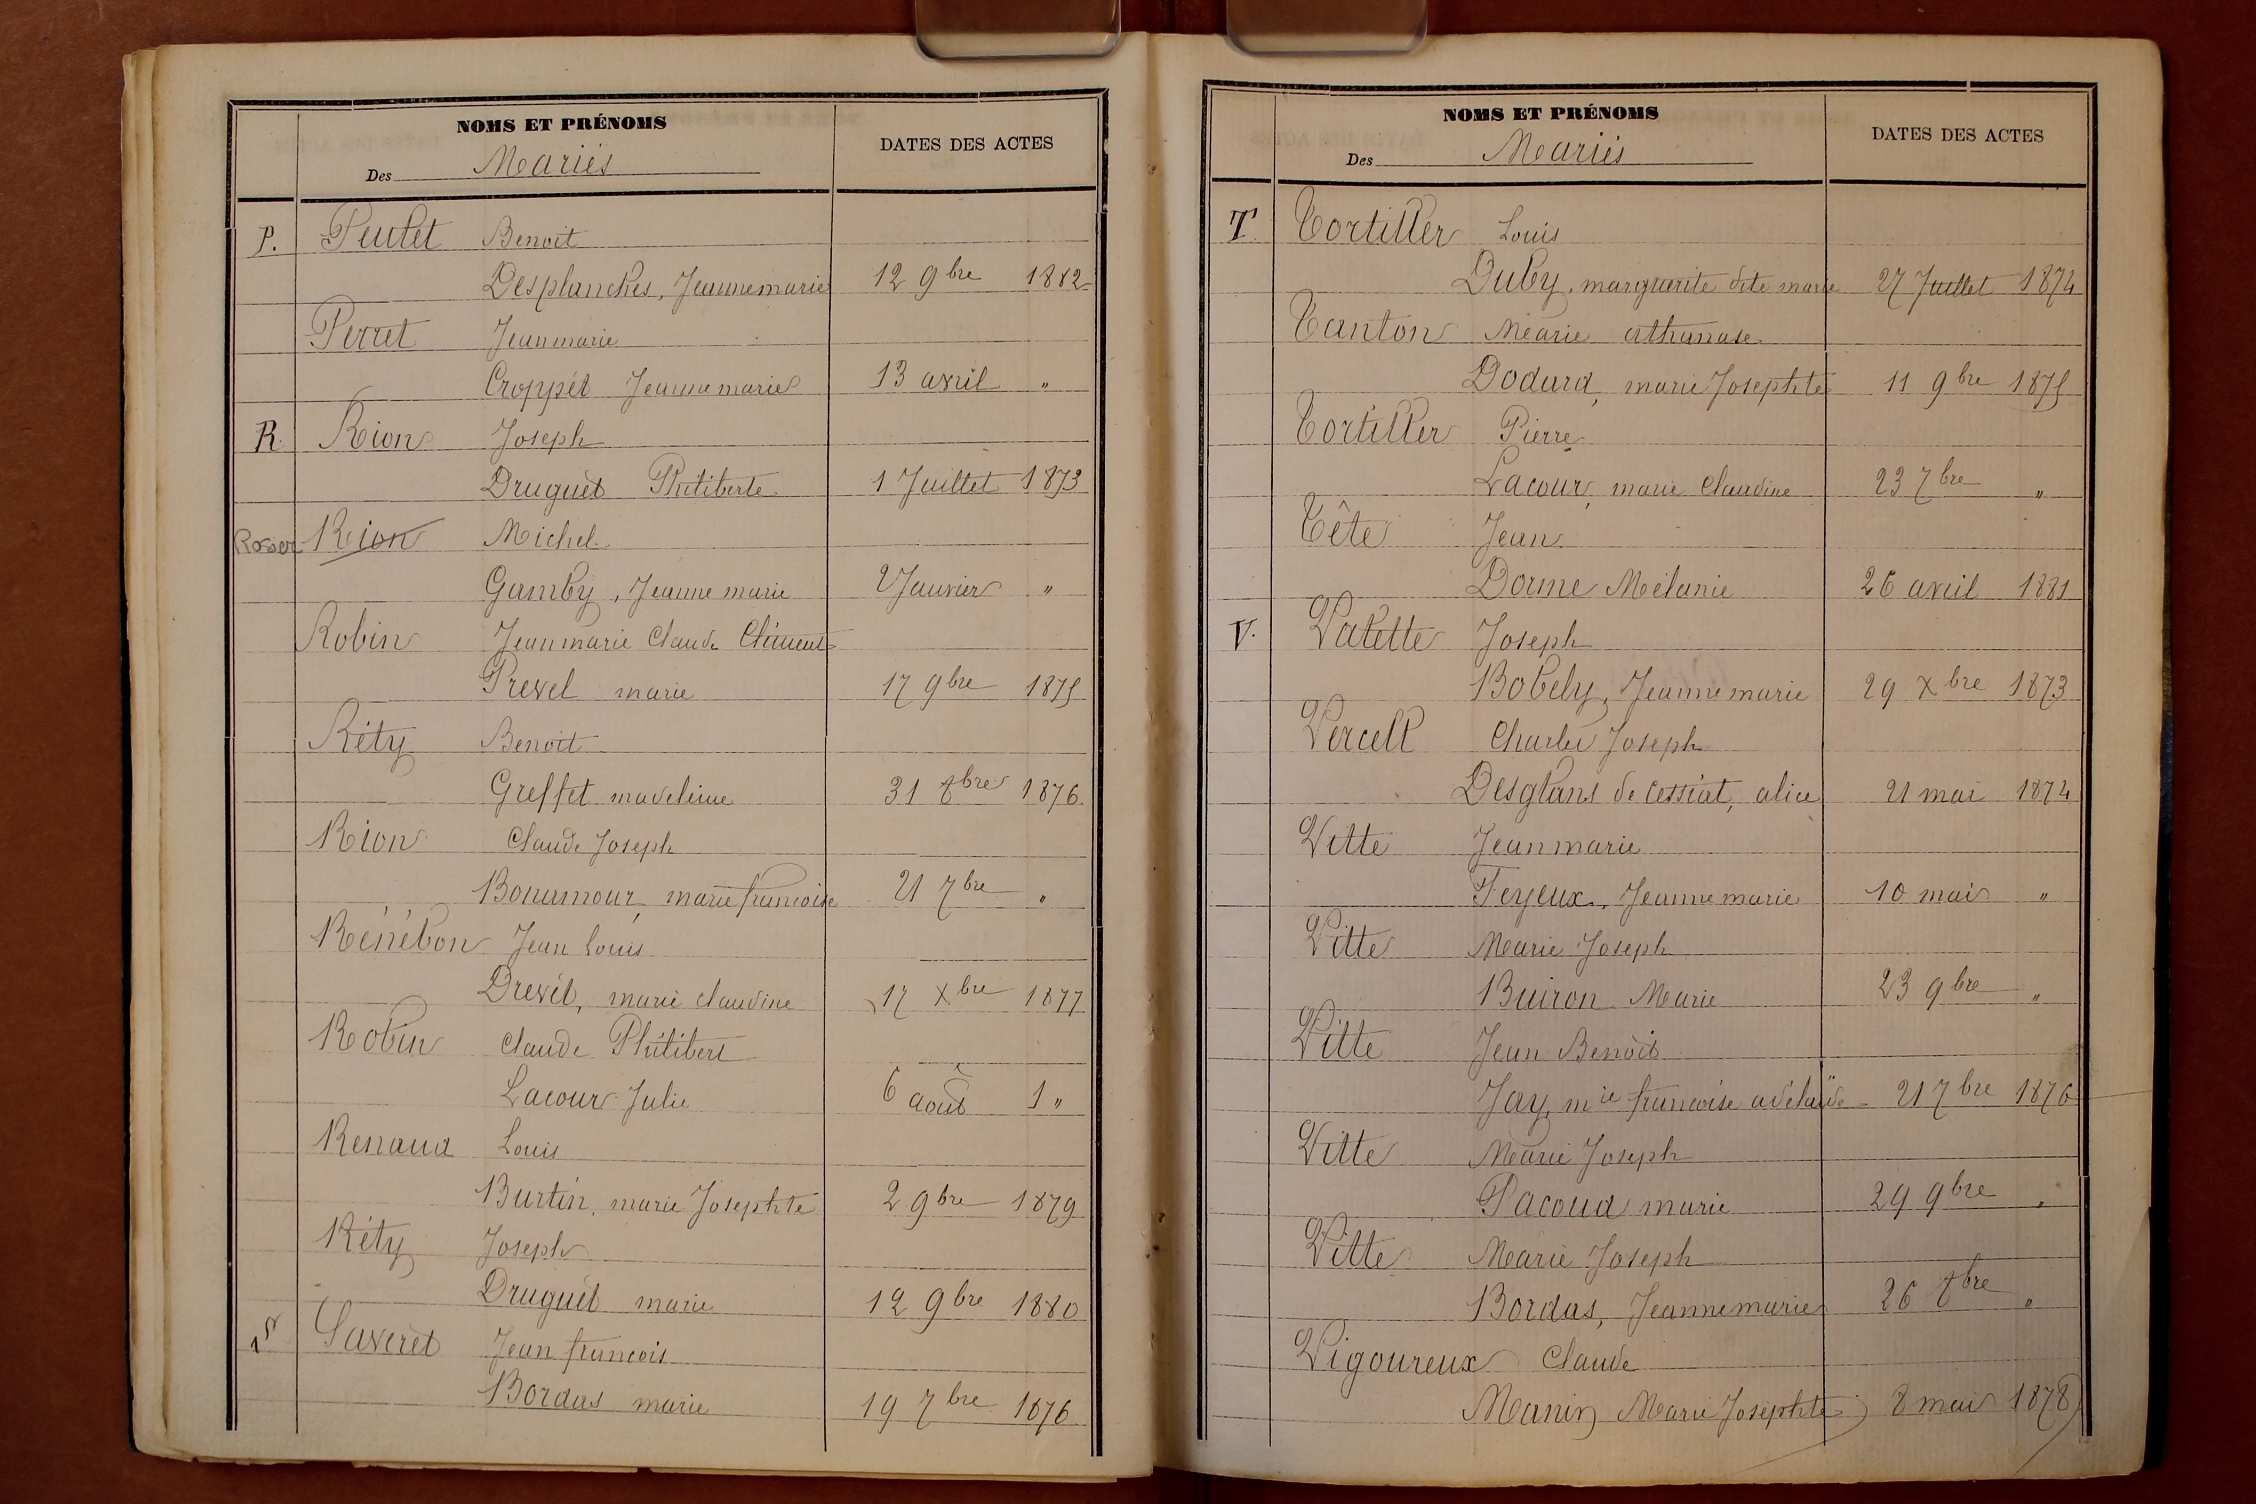 NOMS ET PRÉNOMS
DATES DES ACTES
Des Mariés
P. Peulet Benoit
Desplanches, Jeannemarie 12 9bre 1882
Perret Jeanmarie
Croppét Jeannemarie 13 avril "
R. Rion Joseph
Druguét Philiberte 1 Juillet 1873
Rosier Rion Michel
Gamby, Jeanne marie 2 Janvier "
Robin Jeanmarie Claude Clément
Prevel marie 17 9bre 1875
Réty Benoit
Greffet madeleine 31 8bre 1876
Rion Claude Joseph
Bonamour, marie françoise 21 7bre "
Rénébon Jean Louis
Drevét, marie claudine 17 Xbre 1877
Robin Claude Philibert
Lacour Julie 6 août 1 "
Renaud Louis
Burtin, marie Josephte 2 9bre 1879
Réty Joseph
Druguét marie 12 9bre 1880
S Saverét Jean françois
Bordas marie 19 7bre 1876
NOMS ET PRÉNOMS
DATES DES ACTES
Des Mariés
T Tortiller Louis
Duby, marguerite dite marie 27 Juillet 1874
Tanton Marie athanase
Dodard, marie Josephte 11 9bre 1875
Tortiller Pierre
Lacour, marie Claudine 23 7bre "
Tête Jean
Dorme Mélanie 26 avril 1881
V. Valette Joseph
Bobély, Jeannemarie 29 Xbre 1873
Vercell Charles Joseph
Desglans de cessiat, alice 21 mai 1874
Vitte Jeanmarie
Feyeux, Jeannemarie 10 mai "
Vitte Marie Joseph
Buiron Marie 23 9bre "
Vitte Jean Benoit
Jay, mie françoise adélaïde 21 7bre 1876
Vitte Marie Joseph
Pacoud marie 29 9bre "
Vitte Marie Joseph
Bordas, Jeannemarie 26 8bre "
Vigoureux Claude
Manin Marie Josephte 8 mai 1878